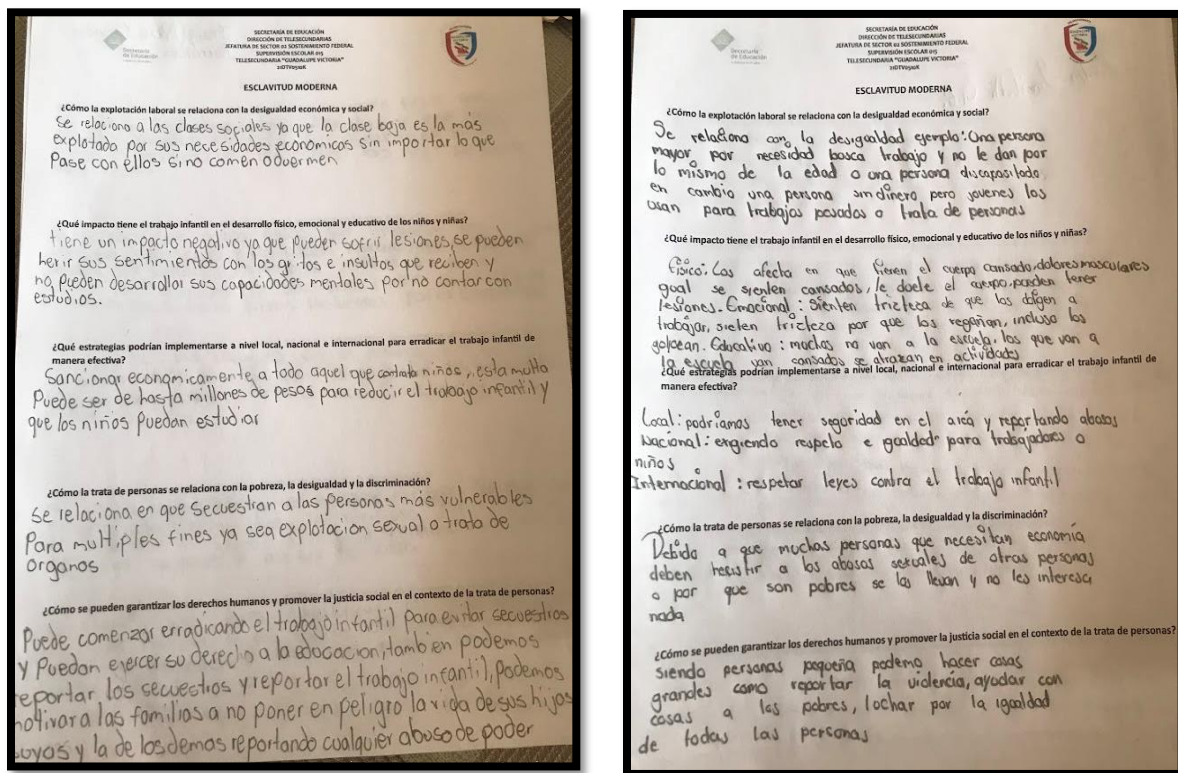 Secretaría
de Educación
SECRETARÍA DE EDUCACIÓN
DIRECCIÓN DE TELESECUNDARIAS
JEFATURA DE SECTOR 02 SOSTENIMIENTO FEDERAL
SUPERVISIÓN ESCOLAR 015
TELESECUNDARIA "GUADALUPE VICTORIA"
ESCLAVITUD MODERNA
¿Cómo la explotación laboral se relaciona con la desigualdad económica y social?
se relaciona a las clases sociales ya que la clase baja es la más
explotada por sus necesidades económicas sin importar lo que
Pase con ellos si no comen o duermen
¿Qué impacto tiene el trabajo infantil en el desarrollo físico, emocional y educativo de los niños y niñas?
tiene un impacto negativo ya que pueden sofrir lesiones, se pueden
herir sus sentimientos con los gritos e insultos que reciben y
no pueden desarrollar sus capacidades mentales por no contar con
estudios.
¿Qué estrategias podrían implementarse a nivel local, nacional e internacional para erradicar el trabajo infantil de
manera efectiva?
Sancionar econgmicamente a todo aquel que contrata niños, esta multa
Puede ser de hasta millones de pesos para reducir el trabajo infantil y
que los niños puedan estudiar
¿Cómo la trata de personas se relaciona con la pobreza, la desigualdad y la discriminación?
se relaciona en que secuestran a las personas más vulnerables
Para multiples fines ya sea explotacion sexual o trata de
organos
¿Cómo se pueden garantizar los derechos humanos y promover la justicia social en el contexto de la trata de personas?
Puede comenzar erradicando el trabajo infantil para evitar secuestros
y puedan ejercer su derecho a la educacion, tambien podemos
reportar los secuestros y reportar el trabajo infantil, podemos
motivar a las familias a no poner en peligro la vida de sus hijos
suyos y la de los demas reportando cualquier abuso de poder
Secretaría
de Educación
SECRETARÍA DE EDUCACIÓN
DIRECCIÓN DE TELESECUNDARIAS
JEFATURA DE SECTOR 02 SOSTENIMIENTO FEDERAL
SUPERVISIÓN ESCOLAR 015
TELESECUNDARIA "GUADALUPE VICTORIA"
ESCLAVITUD MODERNA
¿Cómo la explotación laboral se relaciona con la desigualdad económica y social?
Se relaciona con la desigoaldad ejemplo: Una persona
mayor por necesidad bosca trabajo y no le dan por
lo mismo de la edad o una persona discapasitada
en cambio una persona sin dinero pero jovenes los
osan para trabajos pesados o trata de personas
¿Qué impacto tiene el trabajo infantil en el desarrollo físico, emocional y educativo de los niños y niñas?
Fisico: Los afecta en que tienen el cuerpo cansado, dolores mosculares
igoal se sienten cansados, le doele el cuerpo, pueden tener
lesiones. Emocional: Sienten trizteza de que los obligen a
trabajar, sieten trizteza por que los regañan, incluso los
golpean. Educativo: muchos no van a la escuela, los que van a
la escuela van cansados se atrazan en actividades
¿Qué estrategias podrían implementarse a nivel local, nacional e internacional para erradicar el trabajo infantil de
manera efectiva?
Local: podriamos tener segoridad en el area y reportando abosos
Nacional: exigiendo respeto e igoaldad para trabajadores o
niños
Internacional: respetar leyes contra el trabajo infantil
¿Cómo la trata de personas se relaciona con la pobreza, la desigualdad y la discriminación?
Debido a que muchas personas que necesitan economía
deben resistir a los abosos sexuales de otras personas
o por que son pobres se las llevan y no les interesa
nada
¿Cómo se pueden garantizar los derechos humanos y promover la justicia social en el contexto de la trata de personas?
siendo personas pequeña podemo hacer cosas
grandes como reportar la violencia, ayodar con
cosas a los pobres, lochar por la igoaldad
de todas las personas